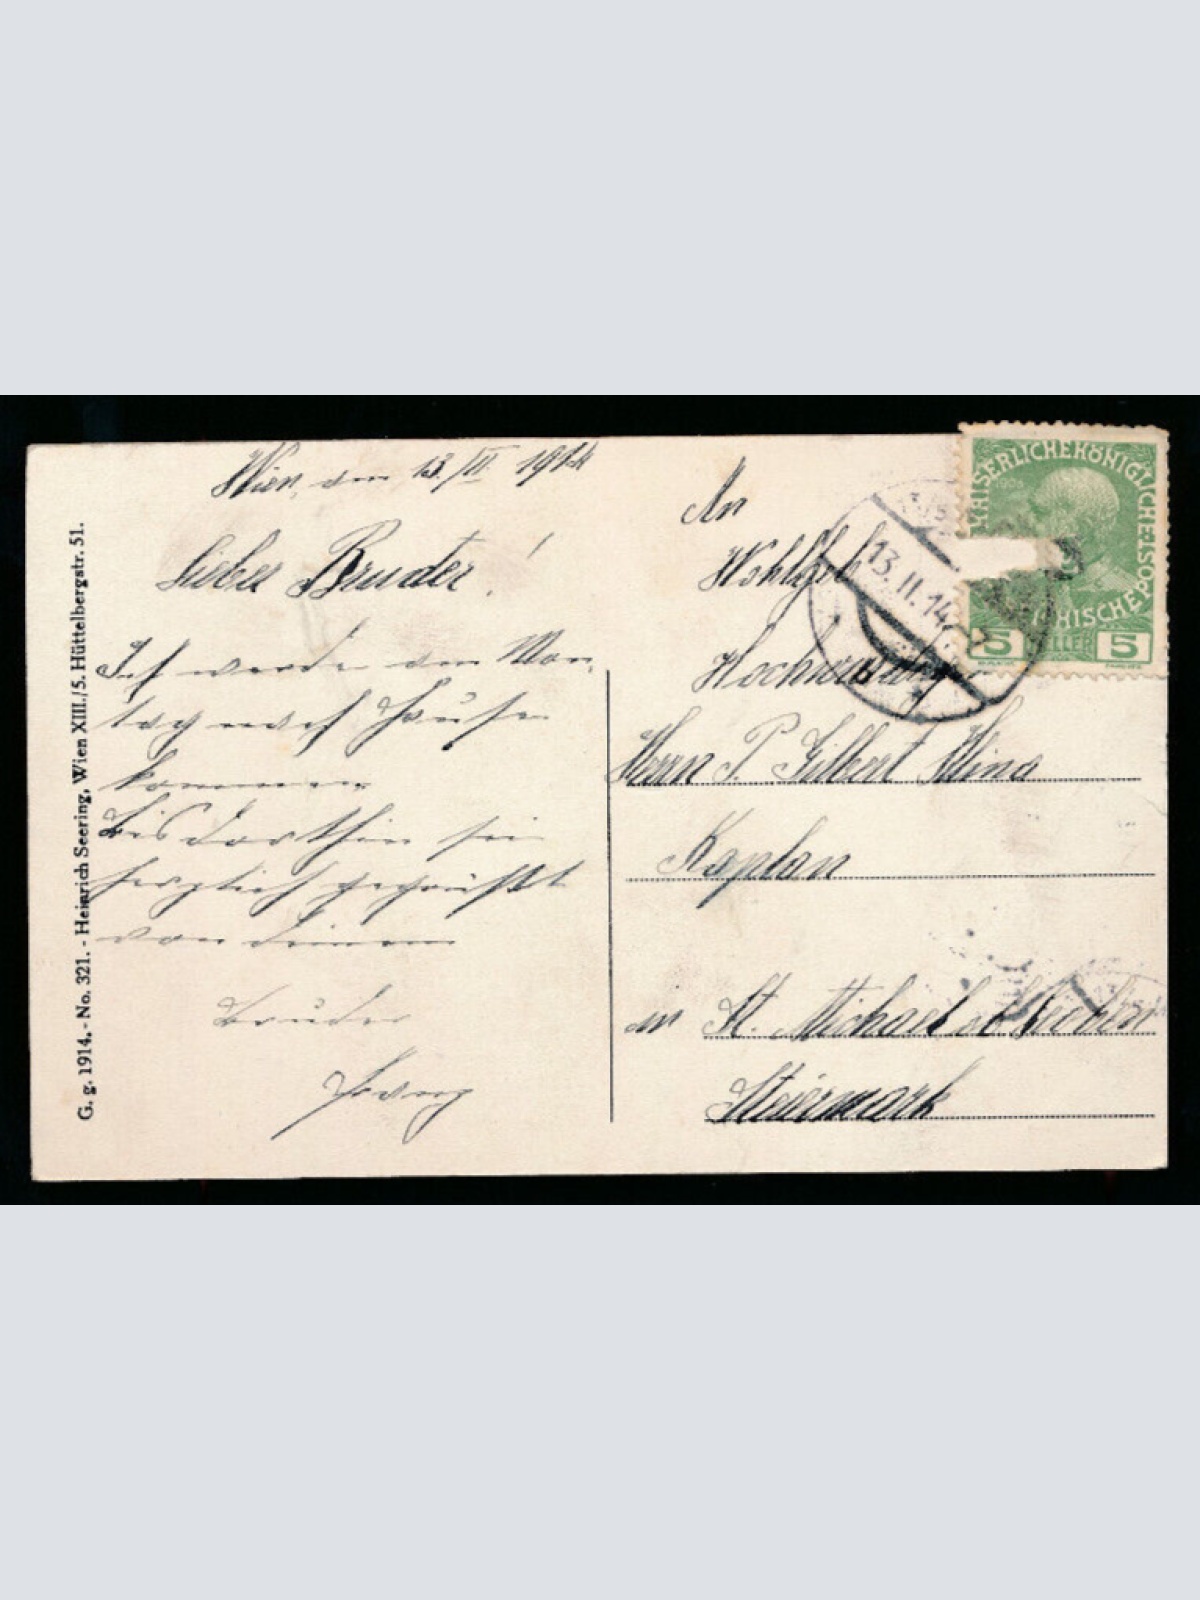 Wien, den 13./II. 1914
Lieber Bruder!
Ich werde am Mon-
tag nach Hause
kommen
Bis dorthin sei
herzlich gegrüßt
von deinem
Bruder
An
Wohlgeb
Hochwürden
Herrn P. Gilbert
Kaplan
in St. Michael ob Leoben
Steiermark
KAISERLICHE KÖNIGLICHE ÖS
ICHISCHE P
1908
5 HELLER 5
13. II. 14
G. g. 1914. - No. 321. - Heinrich Seering, Wien XIII./5. Hüttelbergstr. 51.